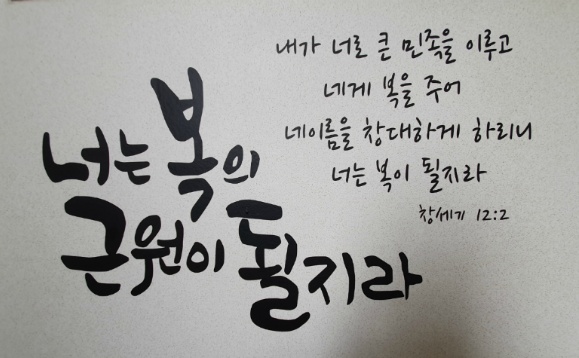 너는 복의
근원이 될지라
내가 너로 큰 민족을 이루고
네게 복을 주어
네이름을 창대하게 하리니
너는 복이 될지라
창세기 12:2